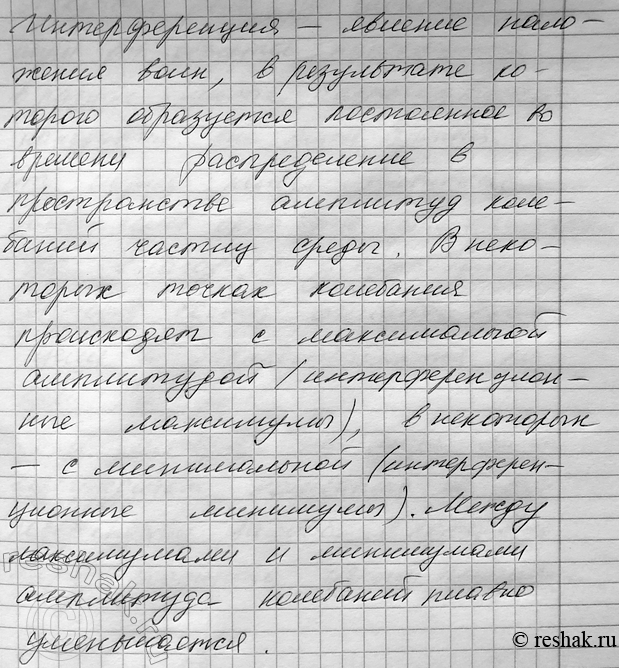 Интерференция – явление нало-
жения волн, в результате ко-
торого образуется постоянное во
времени распределение в
пространстве амплитуд коле-
баний частиц среды. В неко-
торых точках колебания
происходят с максимальной
амплитудой (интерференцион-
ные максимумы), в некоторых
– с минимальной (интерферен-
ционные минимумы). Между
максимумами и минимумами
амплитуда колебаний плавно
уменьшается.
reshak.ru
© reshak.ru